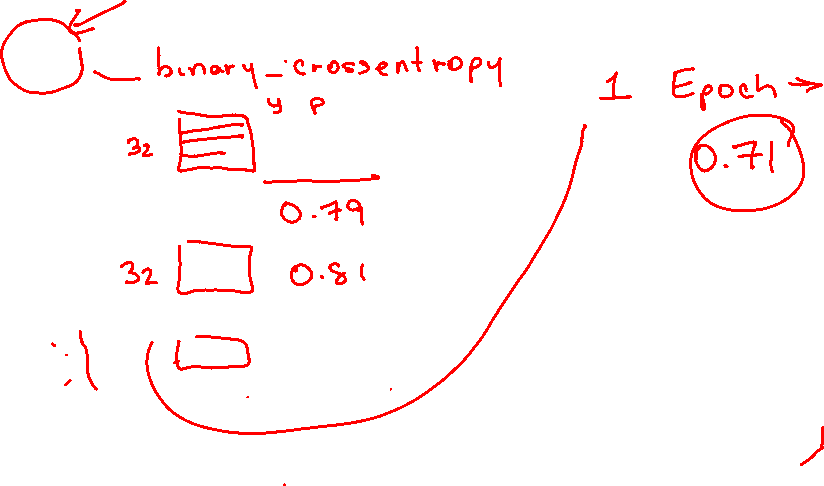 binary_crossentropy
y p
32
0.79
32 0.81
1 Epoch →
0.71